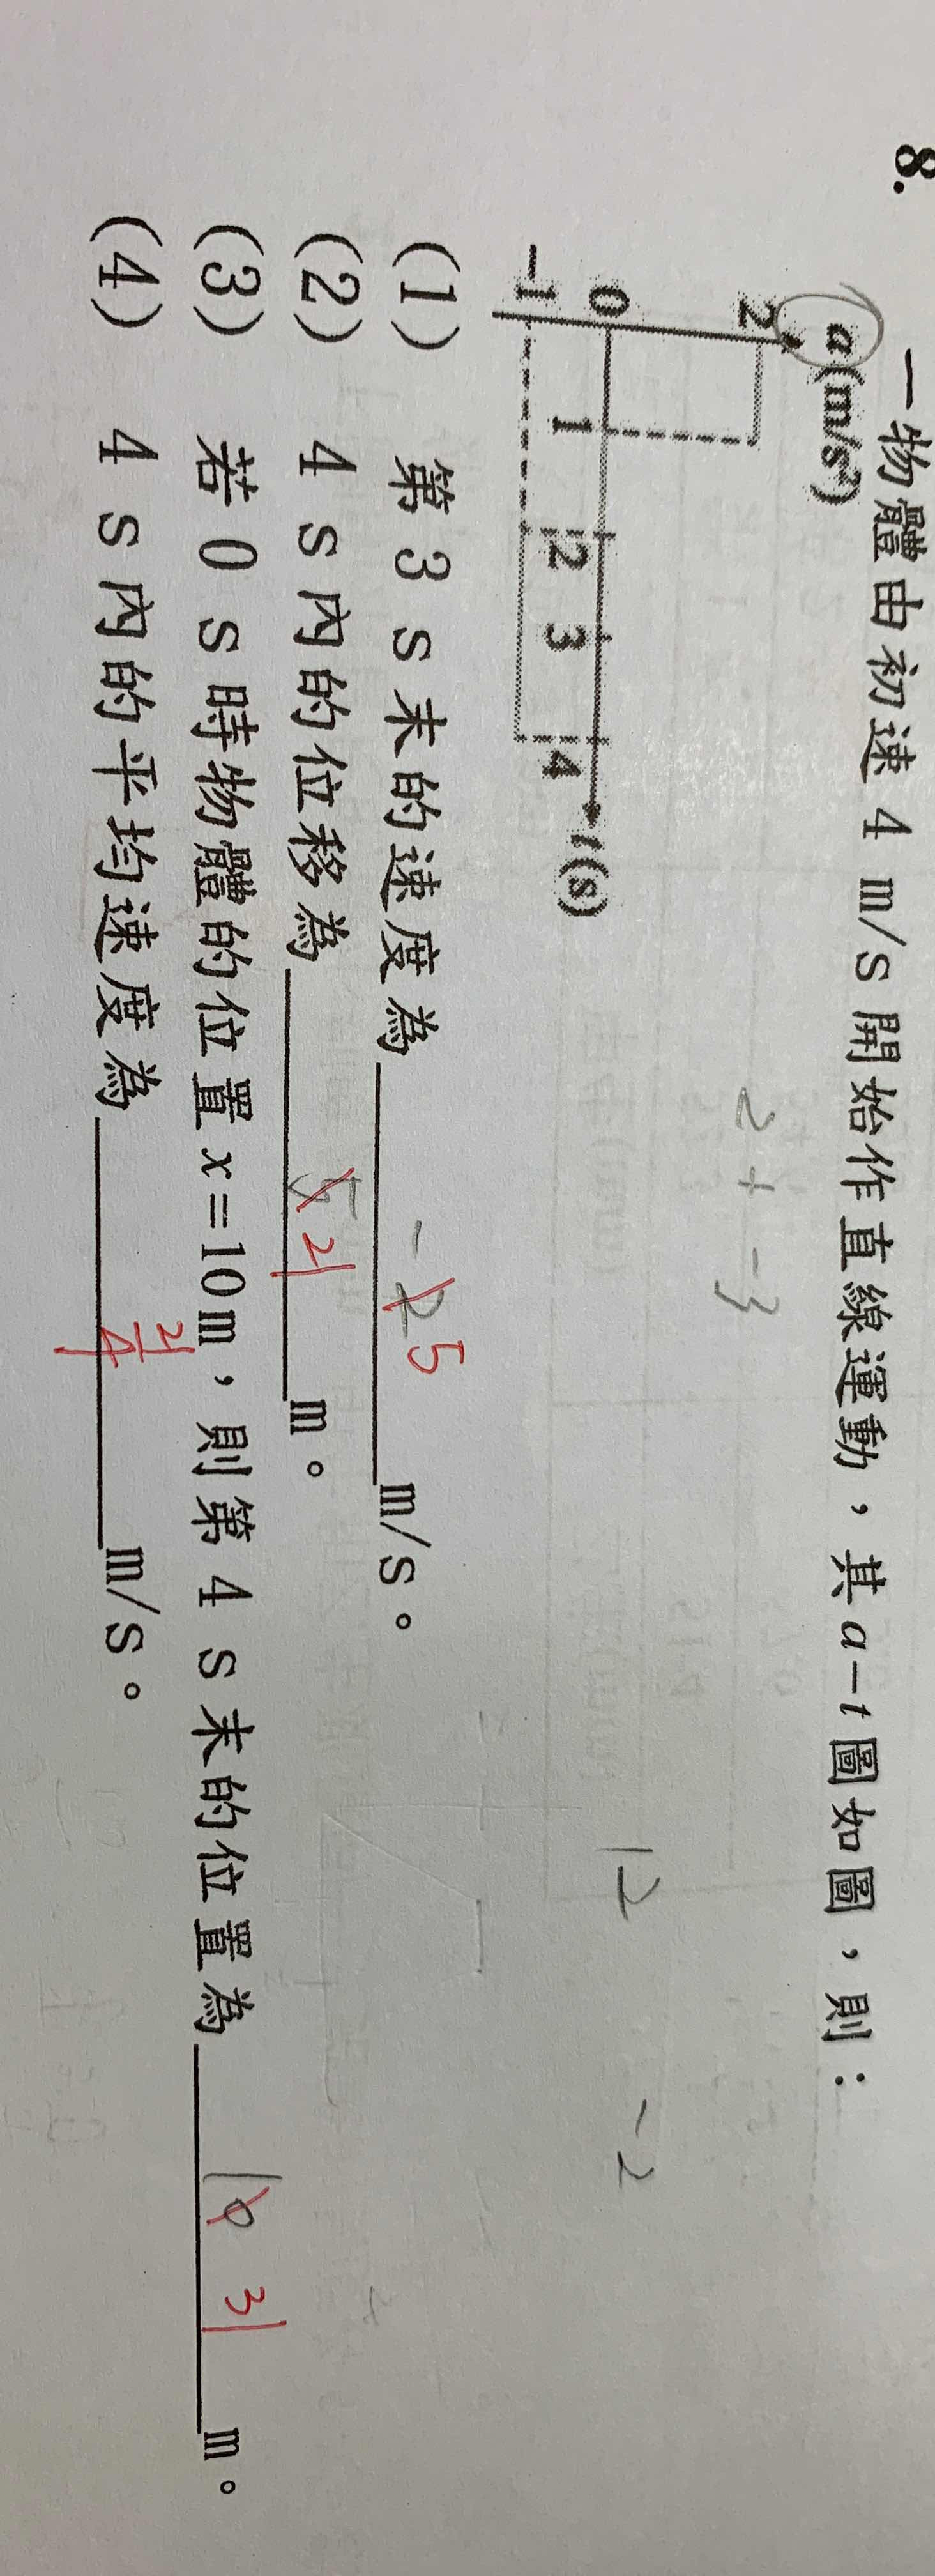 8. 一物體由初速 4 m/s 開始作直線運動，其 a−t 圖如圖，則：
a(m/s²)
2
0
-1
1 2 3 4 t(s)
2+-3
12
-2
(1) 第 3 s 末的速度為 -2 5 m/s。
(2) 4 s 內的位移為 5 21 m。
(3) 若 0 s 時物體的位置 x=10 m，則第 4 s 末的位置為 10 31 m。
(4) 4 s 內的平均速度為 21/4 m/s。